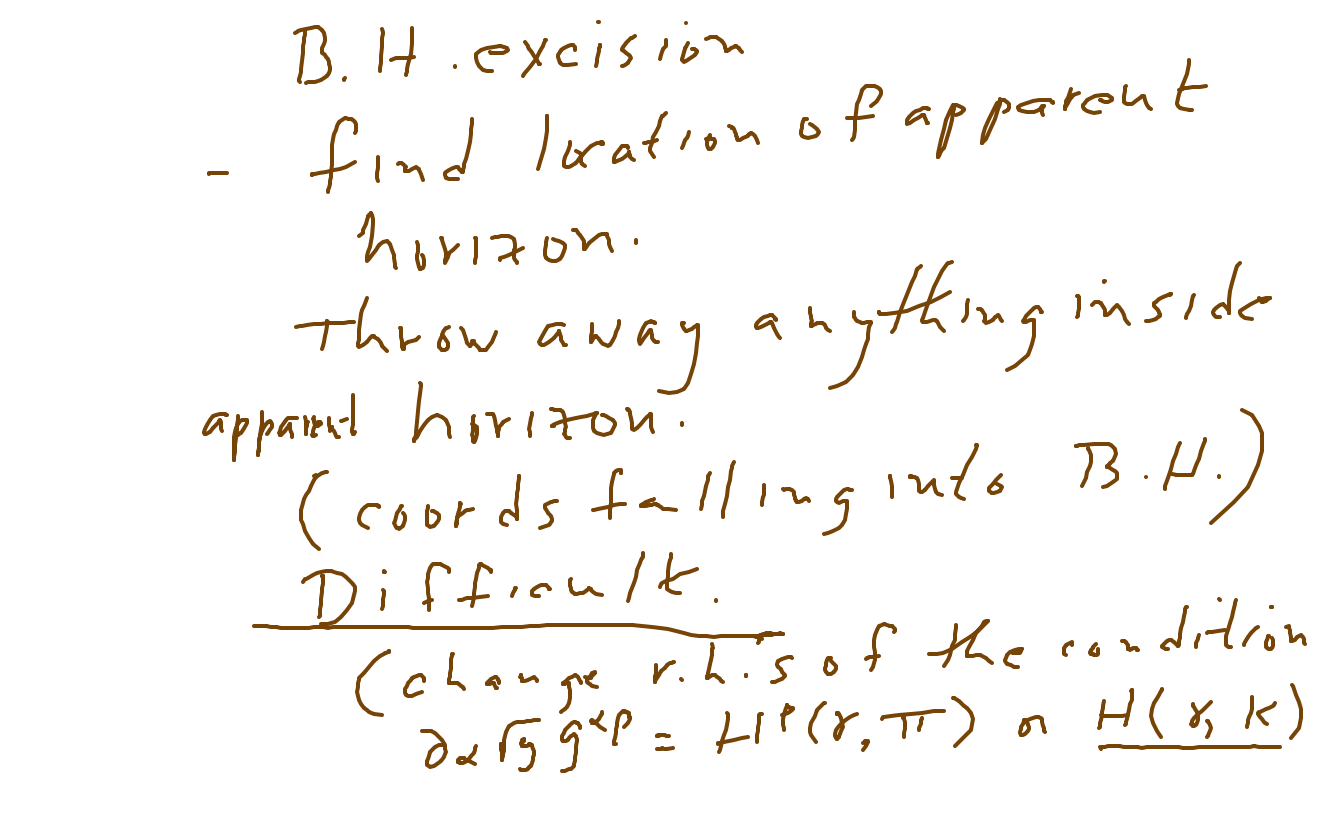 B.H. excision
- find location of apparent
horizon.
Throw away anything inside
apparent horizon.
(coords falling into B.H.)
Difficult.
(change r.h.s of the condition
∂_α √g g^{αβ} = H^β(γ, π) or H(γ, K)